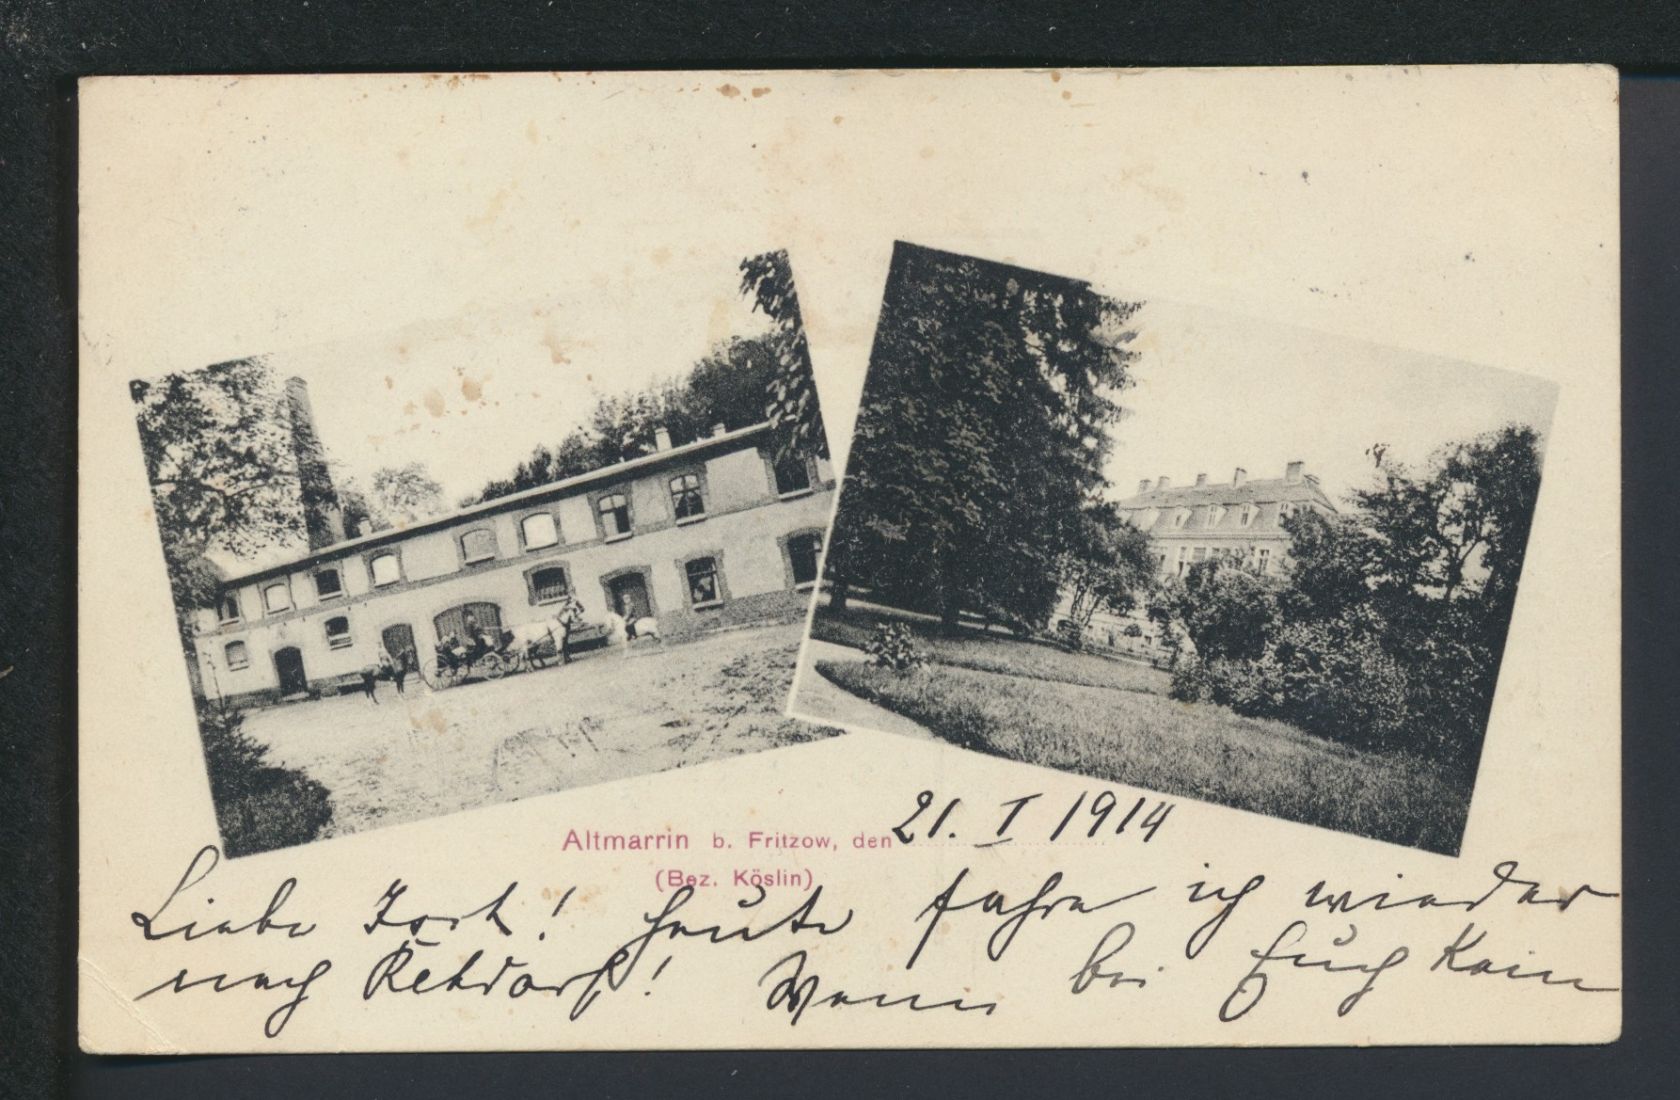 Altmarrin b. Fritzow, den 21. I 1914
(Bez. Köslin)
Liebe ! Heute fahre ich wieder
nach Rehdorf! Wenn bei Euch Kein